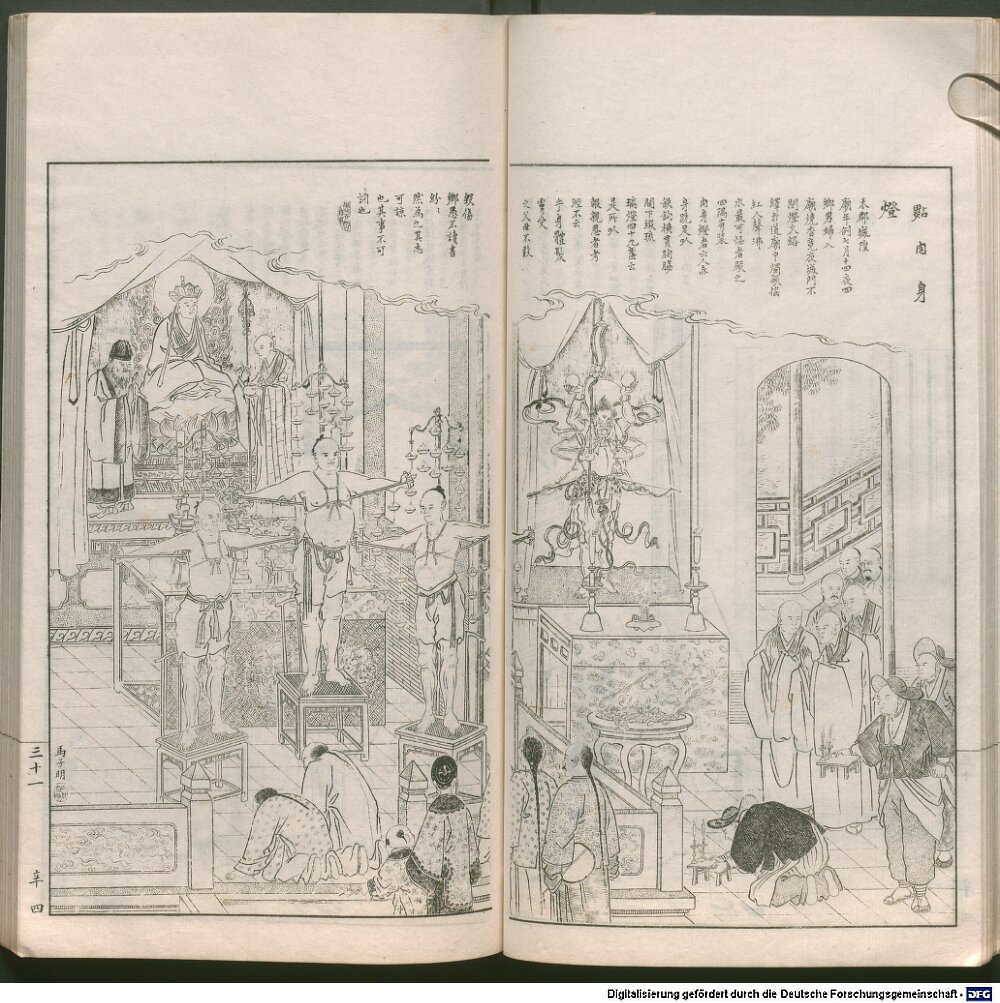 點肉身
燈
禾郡城隍
廟年例七月十四夜四
鄉男婦入
廟燒香竟夜城門不
閉燈火絡
繹於道廟中燭籠搖
紅人聲沸
水最可怪者殿之
四隅有裝
肉身燈者六人赤
身跣足以
鐵鈎橫貫胸脇
間下綴琉
璃燈四十九盞云
是所以
報親恩者考
經不云
乎身體髮
膚受
之父母不敢
毀傷
鄉愚不讀書
紛〻
然為之其志
可諒
也其事不可
訓也
馬子明
三十一
辛
四
Digitalisierung gefördert durch die Deutsche Forschungsgemeinschaft - DFG